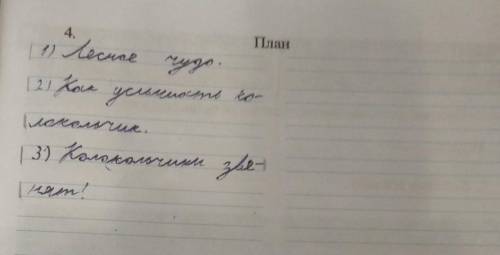 4.
План
1) Лесное чудо.
2) Как услышать ко-
локольчик.
3) Колокольчики зве-
нят!